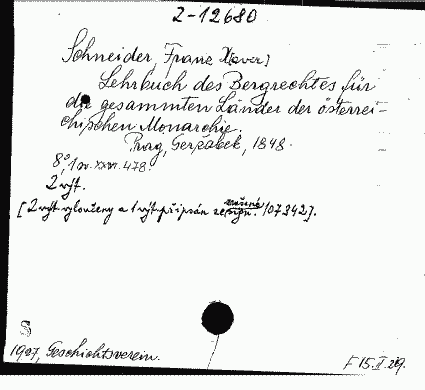 2-12680
Schneider, Franz X(aver)
Lehrbuch des Bergrechtes für
die gesammten Länder der österrei-
chischen Monarchie.
Prag, Geržabek, 1848.
8°, 1 sv. XXVI. 478.
2 výt.
[2 výt. vyloučeny a 1 výt. připsán ze sign. 107342].
S
1907, Geschichtsverein.
F 15.II.29.